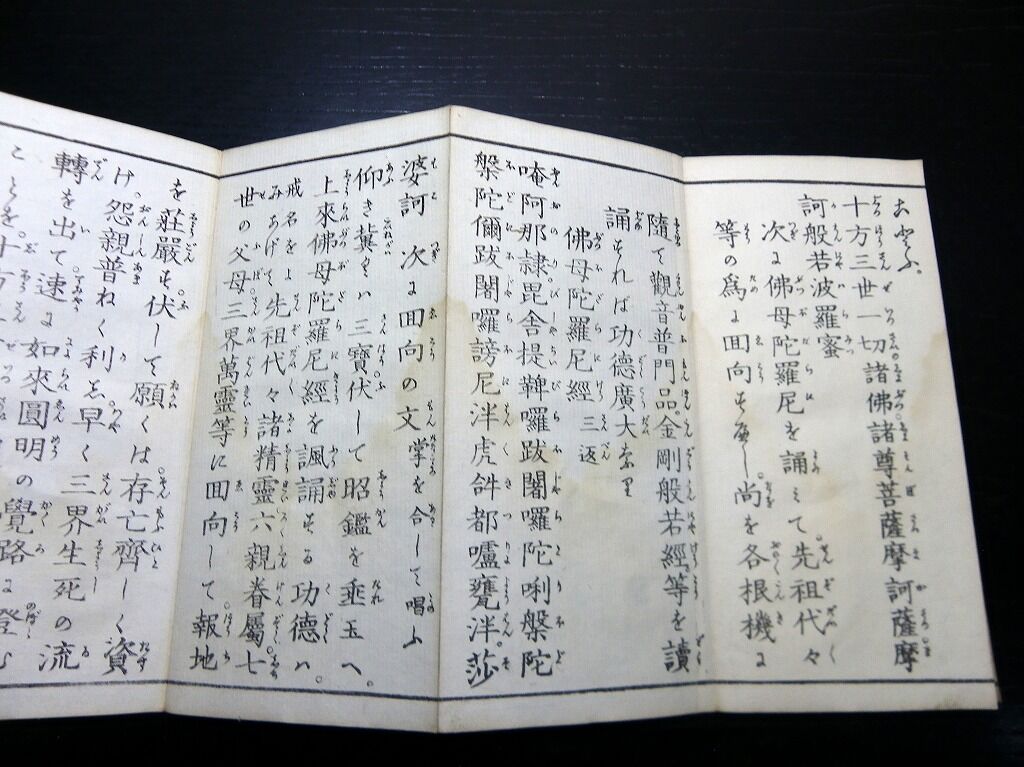 なふ。
十方三世一切諸佛諸尊菩薩摩訶薩摩
訶般若波羅蜜
次に佛母陀羅尼を誦みて先祖代々
等の爲に回向すべし。尚を各根機に
隨て觀音普門品。金剛般若經等を讀
誦すれば功德廣大なり
佛母陀羅尼經 三返
唵阿那隷毘舍提鞞囉跋闍囉陀唎槃陀
槃陀儞跋闍囉謗尼泮虎𤙖都嚧甕泮。莎
婆訶 次に回向の文掌を合して唱ふ
仰き冀くハ三寶伏して昭鑑を垂玉へ。
上來佛母陀羅尼經を諷誦する功德ハ。
戒名をよみあげて先祖代々諸精靈六親眷屬七
世の父母三界萬靈等に回向して報地
を莊嚴す。伏して願くは存亡齊しく資
け。怨親普ねく利し早く三界生死の流
轉を出て速に如來圓明の覺路に登ら